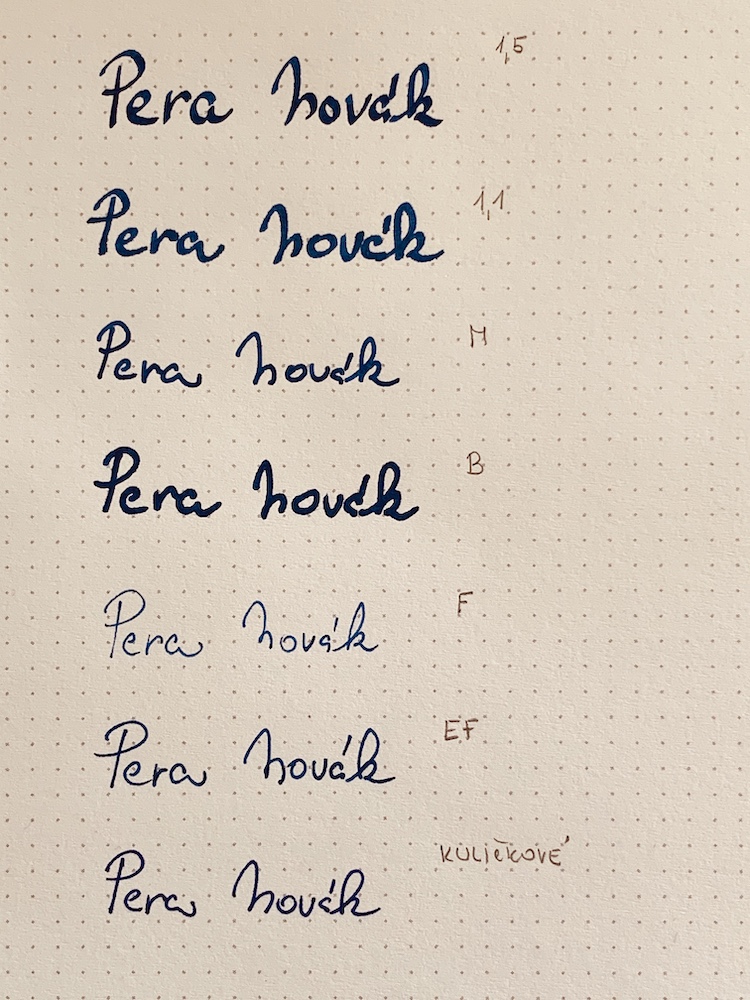 Pera Novák 1,5
Pera Novák 1,1
Pera Novák M
Pera Novák B
Pera Novák F
Pera Novák EF
Pera Novák KULIČKOVÉ